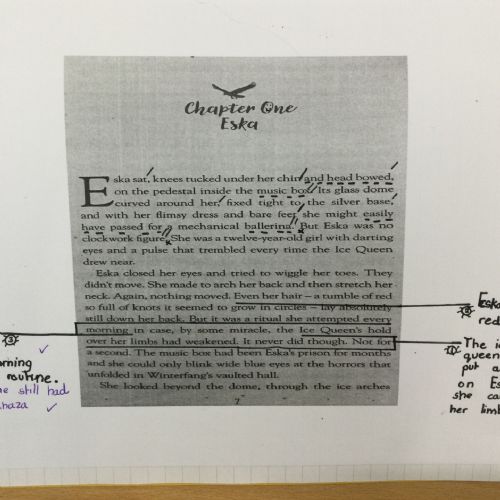 Chapter One
Eska
Eska sat, knees tucked under her chin and head bowed,
on the pedestal inside the music box. Its glass dome
curved around her, fixed tight to the silver base,
and with her flimsy dress and bare feet she might easily
have passed for a mechanical ballerina. But Eska was no
clockwork figure. She was a twelve-year-old girl with darting
eyes and a pulse that trembled every time the Ice Queen
drew near.
Eska closed her eyes and tried to wiggle her toes. They
didn't move. She made to arch her back and then stretch her
neck. Again, nothing moved. Even her hair – a tumble of red
so full of knots it seemed to grow in circles – lay absolutely
still down her back. But it was a ritual she attempted every
morning in case, by some miracle, the Ice Queen's hold
over her limbs had weakened. It never did though. Not for
a second. The music box had been Eska's prison for months
and she could only blink wide blue eyes at the horrors that
unfolded in Winterfang's vaulted hall.
She looked beyond the dome, through the ice arches
7
3
routine.
still had
Eska
red
The ic
queen
put a
on Es
she ca
her limb